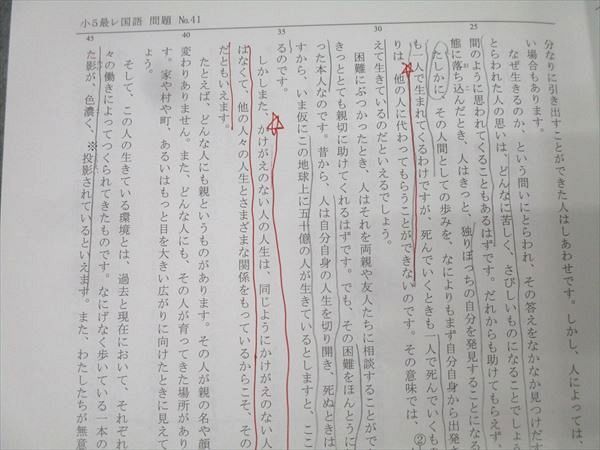 小5最レ国語 問題 №41
25
30
35
40
45
分なりに引き出すことができた人はしあわせです。しかし、人によっては、
い場合もあります。
なぜ生きるのか、という問いにとらわれ、その答えをなかなか見つけだす
とらわれた人の思いは、どんなに苦しく、さびしいものになることでしょう
間のように思われてくることもあるはずです。だれからも助けてもらえず、
態に落ち込んだとき、人はきっと、独りぼっちの自分を発見することになる
たしかに、その人間としての歩みを、なによりもまず自分自身から出発と
も一人で生まれてくるわけですが、死んでいくときも一人で死んでいくも
りは、他の人に代わってもらうことができないのです。その意味では、②
えて生きているのだといえるでしょう。
困難にぶつかったとき、人はそれを両親や友人たちに相談することがで
きっととても親切に助けてくれるはずです。でも、その困難をほんとうに
った本人なのです。昔から、人は自分自身の人生を切り開き、死ぬときは
すから、いま仮にこの地球上に五十億の人が生きているとしますと、ここ
るのです。
しかしまた、かけがえのない人の人生は、同じようにかけがえのない人
はなくて、他の人々の人生とさまざまな関係をもっているからこそ、その
だともいえます。
たとえば、どんな人にも親というものがあります。その人が親の名や顔
変わりありません。また、どんな人にも、その人が育ってきた場所があり
す。家や村や町、あるいはもっと目を大きい広がりに向けたときに見えて
ょう。
そして、この人の生きている環境とは、過去と現在において、それぞれ
々の働きによってつくられてきたものです。なにげなく歩いている一本の
た影が、色濃く、※投影されているといえます。また、わたしたちが無意